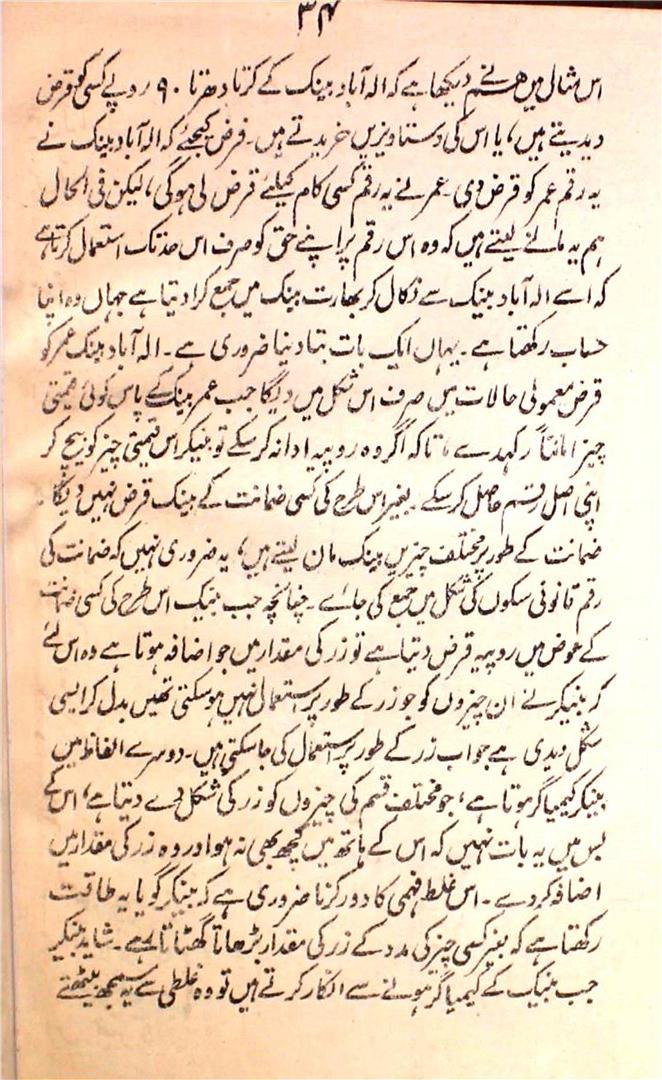 ۳۴
اس مثال میں ہم نے دیکھا ہے کہ الہ آباد بینک کے کرتا دھرتا ۹۰ روپے کسی کو قرض
دیدیتے ہیں، یا اس کی دستاویزیں خریدتے ہیں۔ فرض کیجئے کہ الہ آباد بینک نے
یہ رقم عمر کو قرض دی۔ عمر نے یہ رقم کسی کام کیلئے قرض لی ہوگی، لیکن فی الحال
ہم یہ مانے لیتے ہیں کہ وہ اس رقم پر اپنے حق کو صرف اس حد تک استعمال کرتا ہے
کہ اسے الہ آباد بینک سے نکال کر بھارت بینک میں جمع کرا دیتا ہے جہاں وہ اپنا
حساب رکھتا ہے۔ یہاں ایک بات بتا دینا ضروری ہے۔ الہ آباد بینک عمر کو
قرض معمولی حالات میں صرف اس شکل میں دیگا جب عمر بینک کے پاس کوئی قیمتی
چیز امانتاً رکھدے تاکہ اگر وہ روپیہ ادا نہ کر سکے تو بینکر اس قیمتی چیز کو بیچ کر
اپنی اصل رقم حاصل کر سکے۔ بغیر اس طرح کی کسی ضمانت کے بینک قرض نہیں دیگا۔
ضمانت کے طور پر مختلف چیزیں بینک مان لیتے ہیں، یہ ضروری نہیں کہ ضمانت کی
رقم قانونی سکوں کی شکل میں جمع کی جائے۔ چنانچہ جب بینک اس طرح کی کسی ضمانت
کے عوض میں روپیہ قرض دیتا ہے تو زر کی مقدار میں جو اضافہ ہوتا ہے وہ اس لئے
کہ بینکر نے ان چیزوں کو جو زر کے طور پر استعمال نہیں ہو سکتی تھیں بدل کر ایسی
شکل دیدی ہے جو اب زر کے طور پر استعمال کی جا سکتی ہیں۔ دوسرے الفاظ میں
بینکر کیمیا گر ہوتا ہے، جو مختلف قسم کی چیزوں کو زر کی شکل دے دیتا ہے، اس کے
بس میں یہ بات نہیں کہ اس کے ہاتھ میں کچھ بھی نہ ہو اور وہ زر کی مقدار میں
اضافہ کر دے۔ اس غلط فہمی کا دور کرنا ضروری ہے کہ بینکر گویا یہ طاقت
رکھتا ہے کہ بغیر کسی چیز کی مدد کے زر کی مقدار بڑھاتا گھٹاتا ہے۔ شاید بینکر
جب بینک کے کیمیا گر ہونے سے انکار کرتے ہیں تو وہ غلطی سے یہ سمجھ بیٹھتے